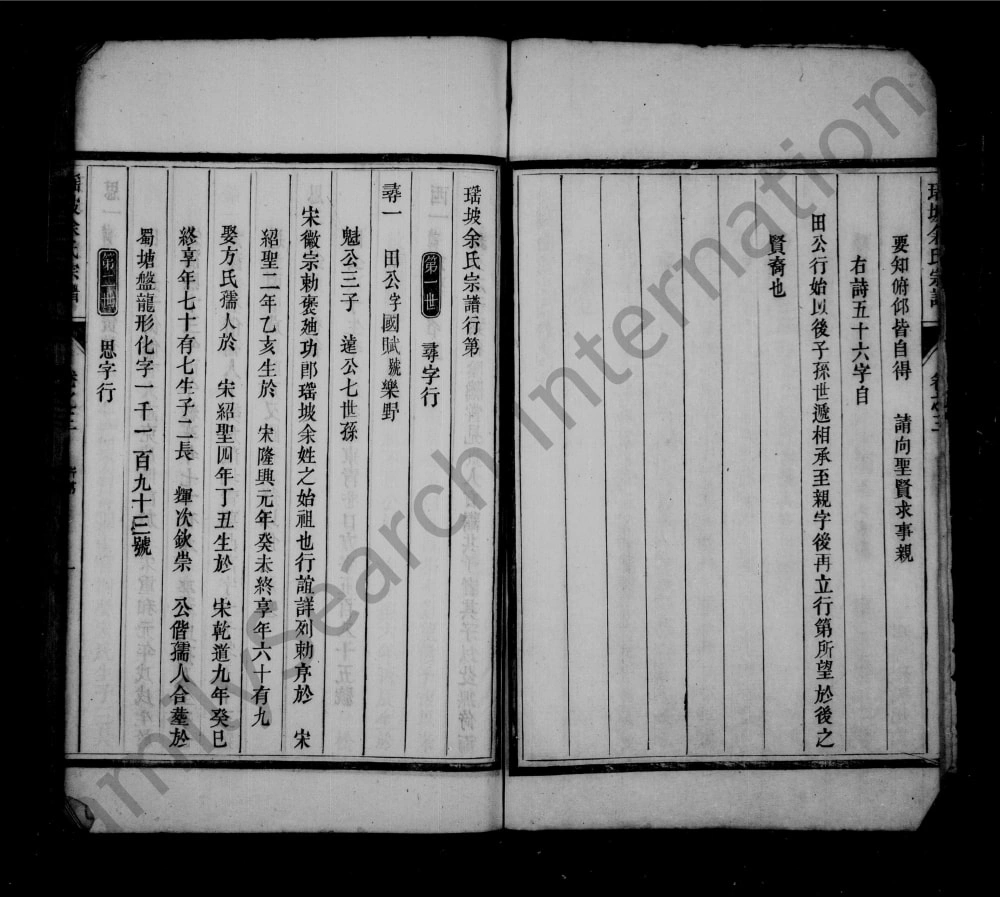 要知俯仰皆自得　請向聖賢求事親
右詩五十六字自
田公行始以後子孫世遞相承至親字後再立行第所望於後之
賢裔也
瑶坡余氏宗譜行第
第一世　尋字行
尋一　田公字國賦號樂野
魁公三子　達公七世孫
宋徽宗勅褒廸功郎瑶坡余姓之始祖也行誼詳列勅序於　宋
紹聖二年乙亥生於　宋隆興元年癸未終享年六十有九
娶方氏孺人於　宋紹聖四年丁丑生於　宋乾道九年癸巳
終享年七十有七生子二長　輝次欽崇　公偕孺人合塟於
蜀塘盤龍形化字一千一百九十三號
第二世　思字行
瑶坡余氏宗譜　卷之三　行第　一
FamilySearch International